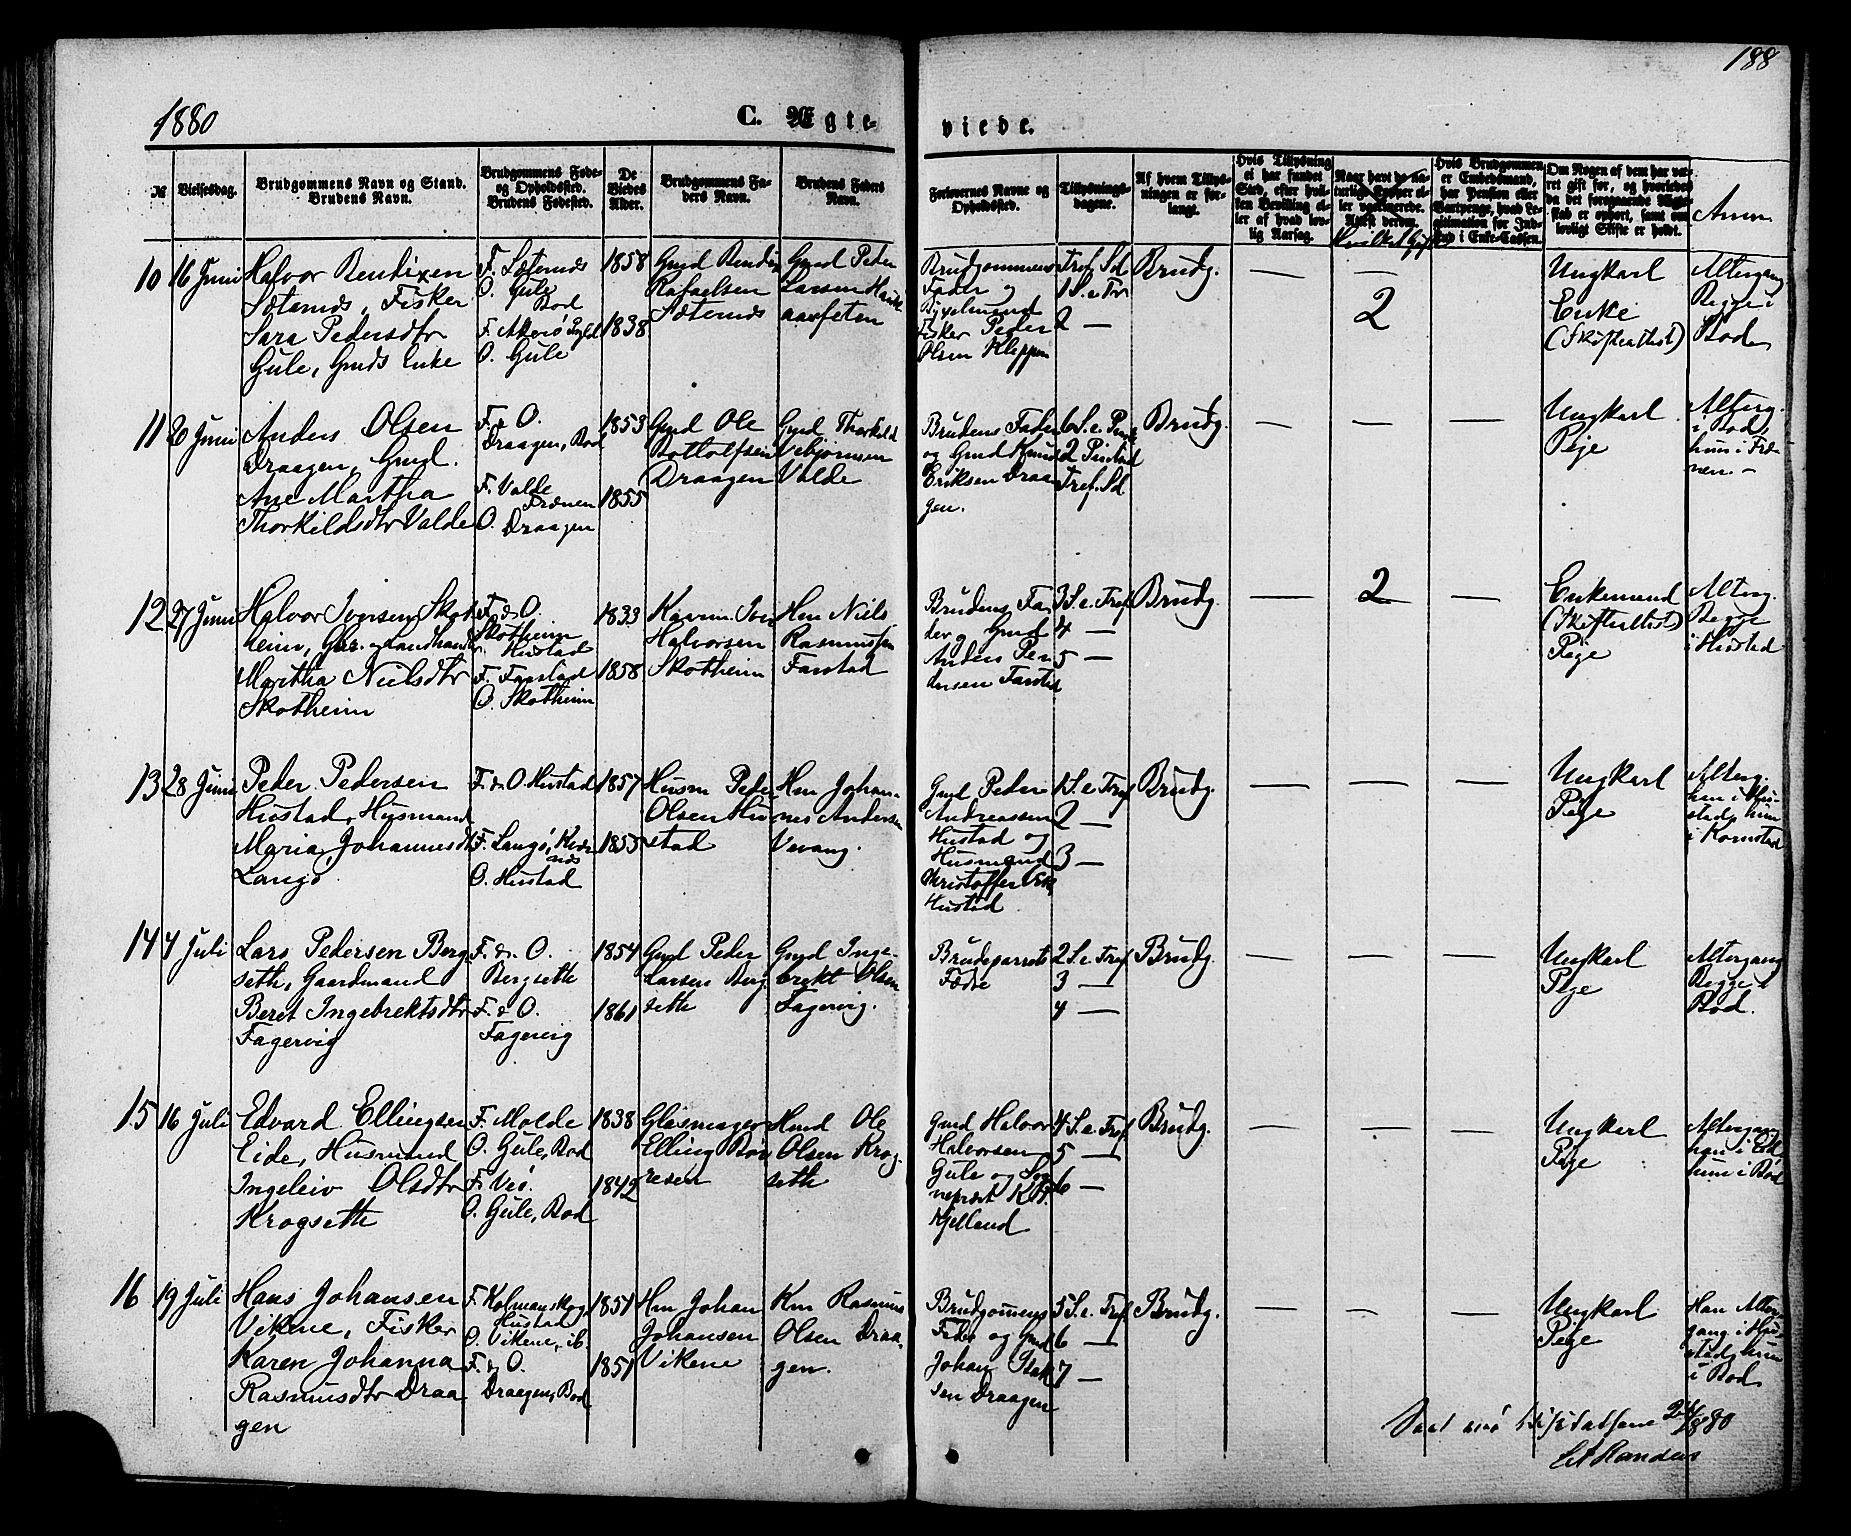 188
1880
C. Ægte-
viede.
№
Vielsesdag.
Brudgommens Navn og Stand.
Brudens Navn.
Brudgommens Føde-
og Opholdssted.
Brudens Fødested.
De
Viedes
Alder.
Brudgommens Fa-
ders Navn.
Brudens Faders
Navn.
Forlovernes Navne og
Opholdssted.
Tillysnings-
dagene.
Af hvem Tillys-
ningen er for-
langt.
Hvis Tillysning
ei har fundet
Sted, efter hvil-
ken Bevilling el-
ler af hvad lov-
lig Aarsag.
Naar havt de na-
turlige Kopper el-
ler vaccinerede.
Attest derom.
Hvis Brudgommen
er Embedsmand,
har Pension eller
Vartpenge, hvad Le-
gitimation for Ind-
skud i Enke-Cassen.
Om Nogen af dem har væ-
ret gift før, og hvorledes
da det foregaaende Ægte-
skab er ophørt, samt om
lovligt Skifte er holdt.
Anm.
10 16 Juni
Halvor Bendixen
Sæternes, Fisker
Sara Pedersdtr
Gule, Gmds Enke
F. Sæternes
O. Gule
Bod
F. Akerø
O. Gule
1858
1838
Gmd Bendix
Rafaelsen
Sæternes
Gmd Peder
Larsen
Brudgommens
Fader og
Fisker Peder
Olsen Kleppen
Tref. Sd
1 S. e. Tr
2 —
Brudg.
—
—
2
Ungkarl
Enke
(Skifteattest)
Altergang
Begge i
Bod
11 20 Juni
Anders Olsen
Draagen, Gmd.
Ane Martha
Thorkildsdtr Valde
F. & O.
Draagen, Bod
F. Valde
Frænen
O. Draagen
1853
1855
Gmd Ole
Bottolfsen
Draagen
Gmd Thorkild
Vebjørnsen
Valde
Brudens Fader
og Gmd Knud
Eriksen Draa
gen.
2 Pintsd
Tref. Sd
Brudg.
—
—
—
Ungkarl
Pige
Alterg.
i Bod,
hun i Fræ-
nen. -
12 27 Juni
Halvor Iversen Skot
heim, Gbr. og Landhandler
Martha Nielsdtr
Skotheim
F. & O.
Skotheim
Hustad
F. Farstad
O. Skotheim
1833
1858
Iver
Halvorsen
Skotheim
Hm Niels
Rasmussen
Farstad
Brudens Fa
der og Gmd
Anders Pe
dersen Farstad
3 S. e. Tref.
4 —
5 —
Brudg.
—
2
—
Enkemand
(Skifteattest)
Pige
Alterg.
Begge
i Hustad
13 28 Juni
Peder Pedersen
Hustad, Husmand
Maria Johannesdtr
Langø
F. & O. Hustad
F. Langø, Kver
næs
O. Hustad
1857
1853
Husm Peder
Olsen Hu
stad
Hm Johan-
nes Andersen
Vevang.
Gmd Peder
Andreassen
Hustad og
Husmand
Christoffer
Hustad
1 S. e. Tref
2 —
3 —
Brudg.
—
—
—
Ungkarl
Pige
Alterg.
han i Hu-
stad, hun
i Kornstad
14 4 Juli
Lars Pedersen Berg
seth, Gaardmand
Beret Ingebrektsdtr
Fagervig
F. & O.
Bergseth
F. & O.
Fagervig
1854
1861
Gmd Peder
Larsen Berg
seth
Gmd Inge-
brekt Olsen
Fagervig.
Brudeparrets
Fædre
2 S. e. Tref.
3 —
4 —
Brudg.
—
—
—
Ungkarl
Pige
Altergang
Begge i
Bod.
15 16 Juli
Edvard Ellingsen
Eide, Husmand
Ingeleiv Olsdtr
Krogseth
F. Molde
O. Gule, Bod
F. Veø.
O. Gule, Bod
1838
1842
Glasmager
Elling Bør
resen
Hmd Ole
Olsen Krog-
seth
Gmd Halvor
Halvorsen
Gule og Sog
nepræst
Kjelland
4 S. e. Tref
5 —
6 —
Brudg.
—
—
—
Ungkarl
Pige
Altergang
hun i Bod
16 19 Juli
Hans Johansen
Vikene, Fisker
Karen Johanna
Rasmusdtr Draa
gen
F. Kolmanskog
Hustad
O. Vikene, ib.
F. & O.
Draagen, Bod
1851
1851
Hm Johan
Johansen
Vikene
Km Rasmus
Olsen Draa-
gen.
Brudgommens
Fader og Gmd
Johan
sen Draagen
5 S. e. Tref.
6 —
7 —
Brudg.
—
—
—
Ungkarl
Pige
Han Alter
gang i Hu-
stad, hun
i Bod
1880